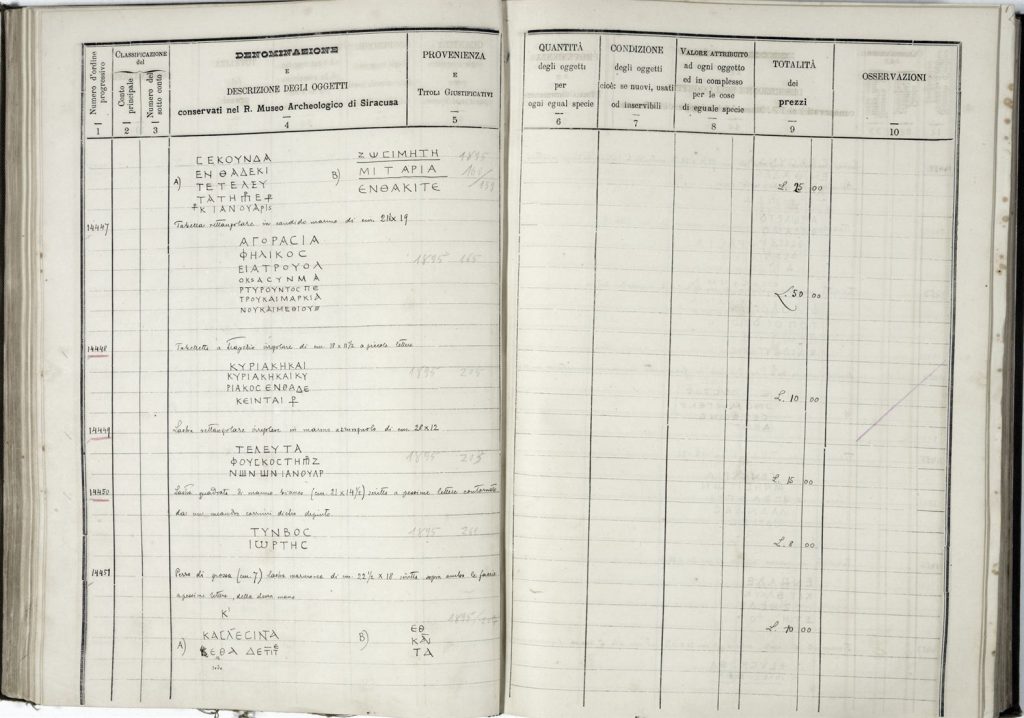 Numero d'ordine progressivo
CLASSIFICAZIONE del
Conto principale
Numero del sotto conto
DENOMINAZIONE
E
DESCRIZIONE DEGLI OGGETTI
conservati nel R. Museo Archeologico di Siracusa
PROVENIENZA
E
TITOLI GIUSTIFICATIVI
1 2 3 4 5
QUANTITÀ
degli oggetti
per
ogni egual specie
CONDIZIONE
degli oggetti
cioè: se nuovi, usati
od inservibili
VALORE ATTRIBUITO
ad ogni oggetto
ed in complesso
per le cose
di eguale specie
TOTALITÀ
dei
prezzi
OSSERVAZIONI
6 7 8 9 10
A)
ϹΕΚΟΥΝΔΑ
ΕΝΘΑΔΕΚΙ
ΤΕΤΕΛΕΥ
ΚΙΑΝΟΥΑΡΙϹ
B)
ΖΩϹΙΜΗΤΗ
ΜΙΤΑΡΙΑ
ΕΝΘΑΚΙΤΕ
1895
L. 25 00
14447
Tabella rettangolare in candido marmo di cm. 21 x 19
ΑΓΟΡΑϹΙΑ
ΦΗΛΙΚΟϹ
ΕΙΑΤΡΟΥΟΛ
ΟΚΣΑϹΥΝΜΑ
ΡΤΥΡΟΥΝΤΟϹΠΕ
ΤΡΟΥΚΑΙΜΑΡΚΙΑ
ΝΟΥΚΑΙΜΕΘΙΟΥΒ
1895 165
L. 50 00
14448
Tabelletta a trapezio irregolare di cm. 18 x 11 1/2 a piccole lettere
ΚΥΡΙΑΚΗΚΑΙ
ΚΥΡΙΑΚΗΚΑΙΚΥ
ΡΙΑΚΟϹ ΕΝΘΑΔΕ
ΚΕΙΝΤΑΙ
1895 205
L. 10 00
14449
Lastra rettangolare irregolare in marmo di cm. 28 x 12
ΤΕΛΕΥΤΑ
ΦΟΥϹΚΟϹΤΗΠΖ
ΝΩΝΩΝΙΑΝΟΥΑΡ
1895 205
L. 15 00
14450
Lastra quadrata di marmo bianco (cm. 21 x 14 1/2) scritta a pessime lettere contornata
da un meandro corrivi dietro dipinto.
ΤΥΝΒΟϹ
ΙΩΡΤΗϹ
1895
L. 8 00
14451
Pezzo di grossa (cm. 7) lastra marmorea di cm. 22 1/2 x 18 scritta sopra ambo le faccie
a pessime lettere, della stessa mano
Κ
A)
ΚΑϹΛΕϹΙΝΑ
ΕΘΑ
B)
ΕΘ
ΚΑΝ
ΤΑ
1895
L. 10 00